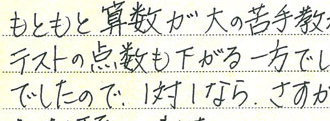 もともと算数が大の苦手教
テストの点数も下がる一方でし
でしたので、1対1なら、さすが